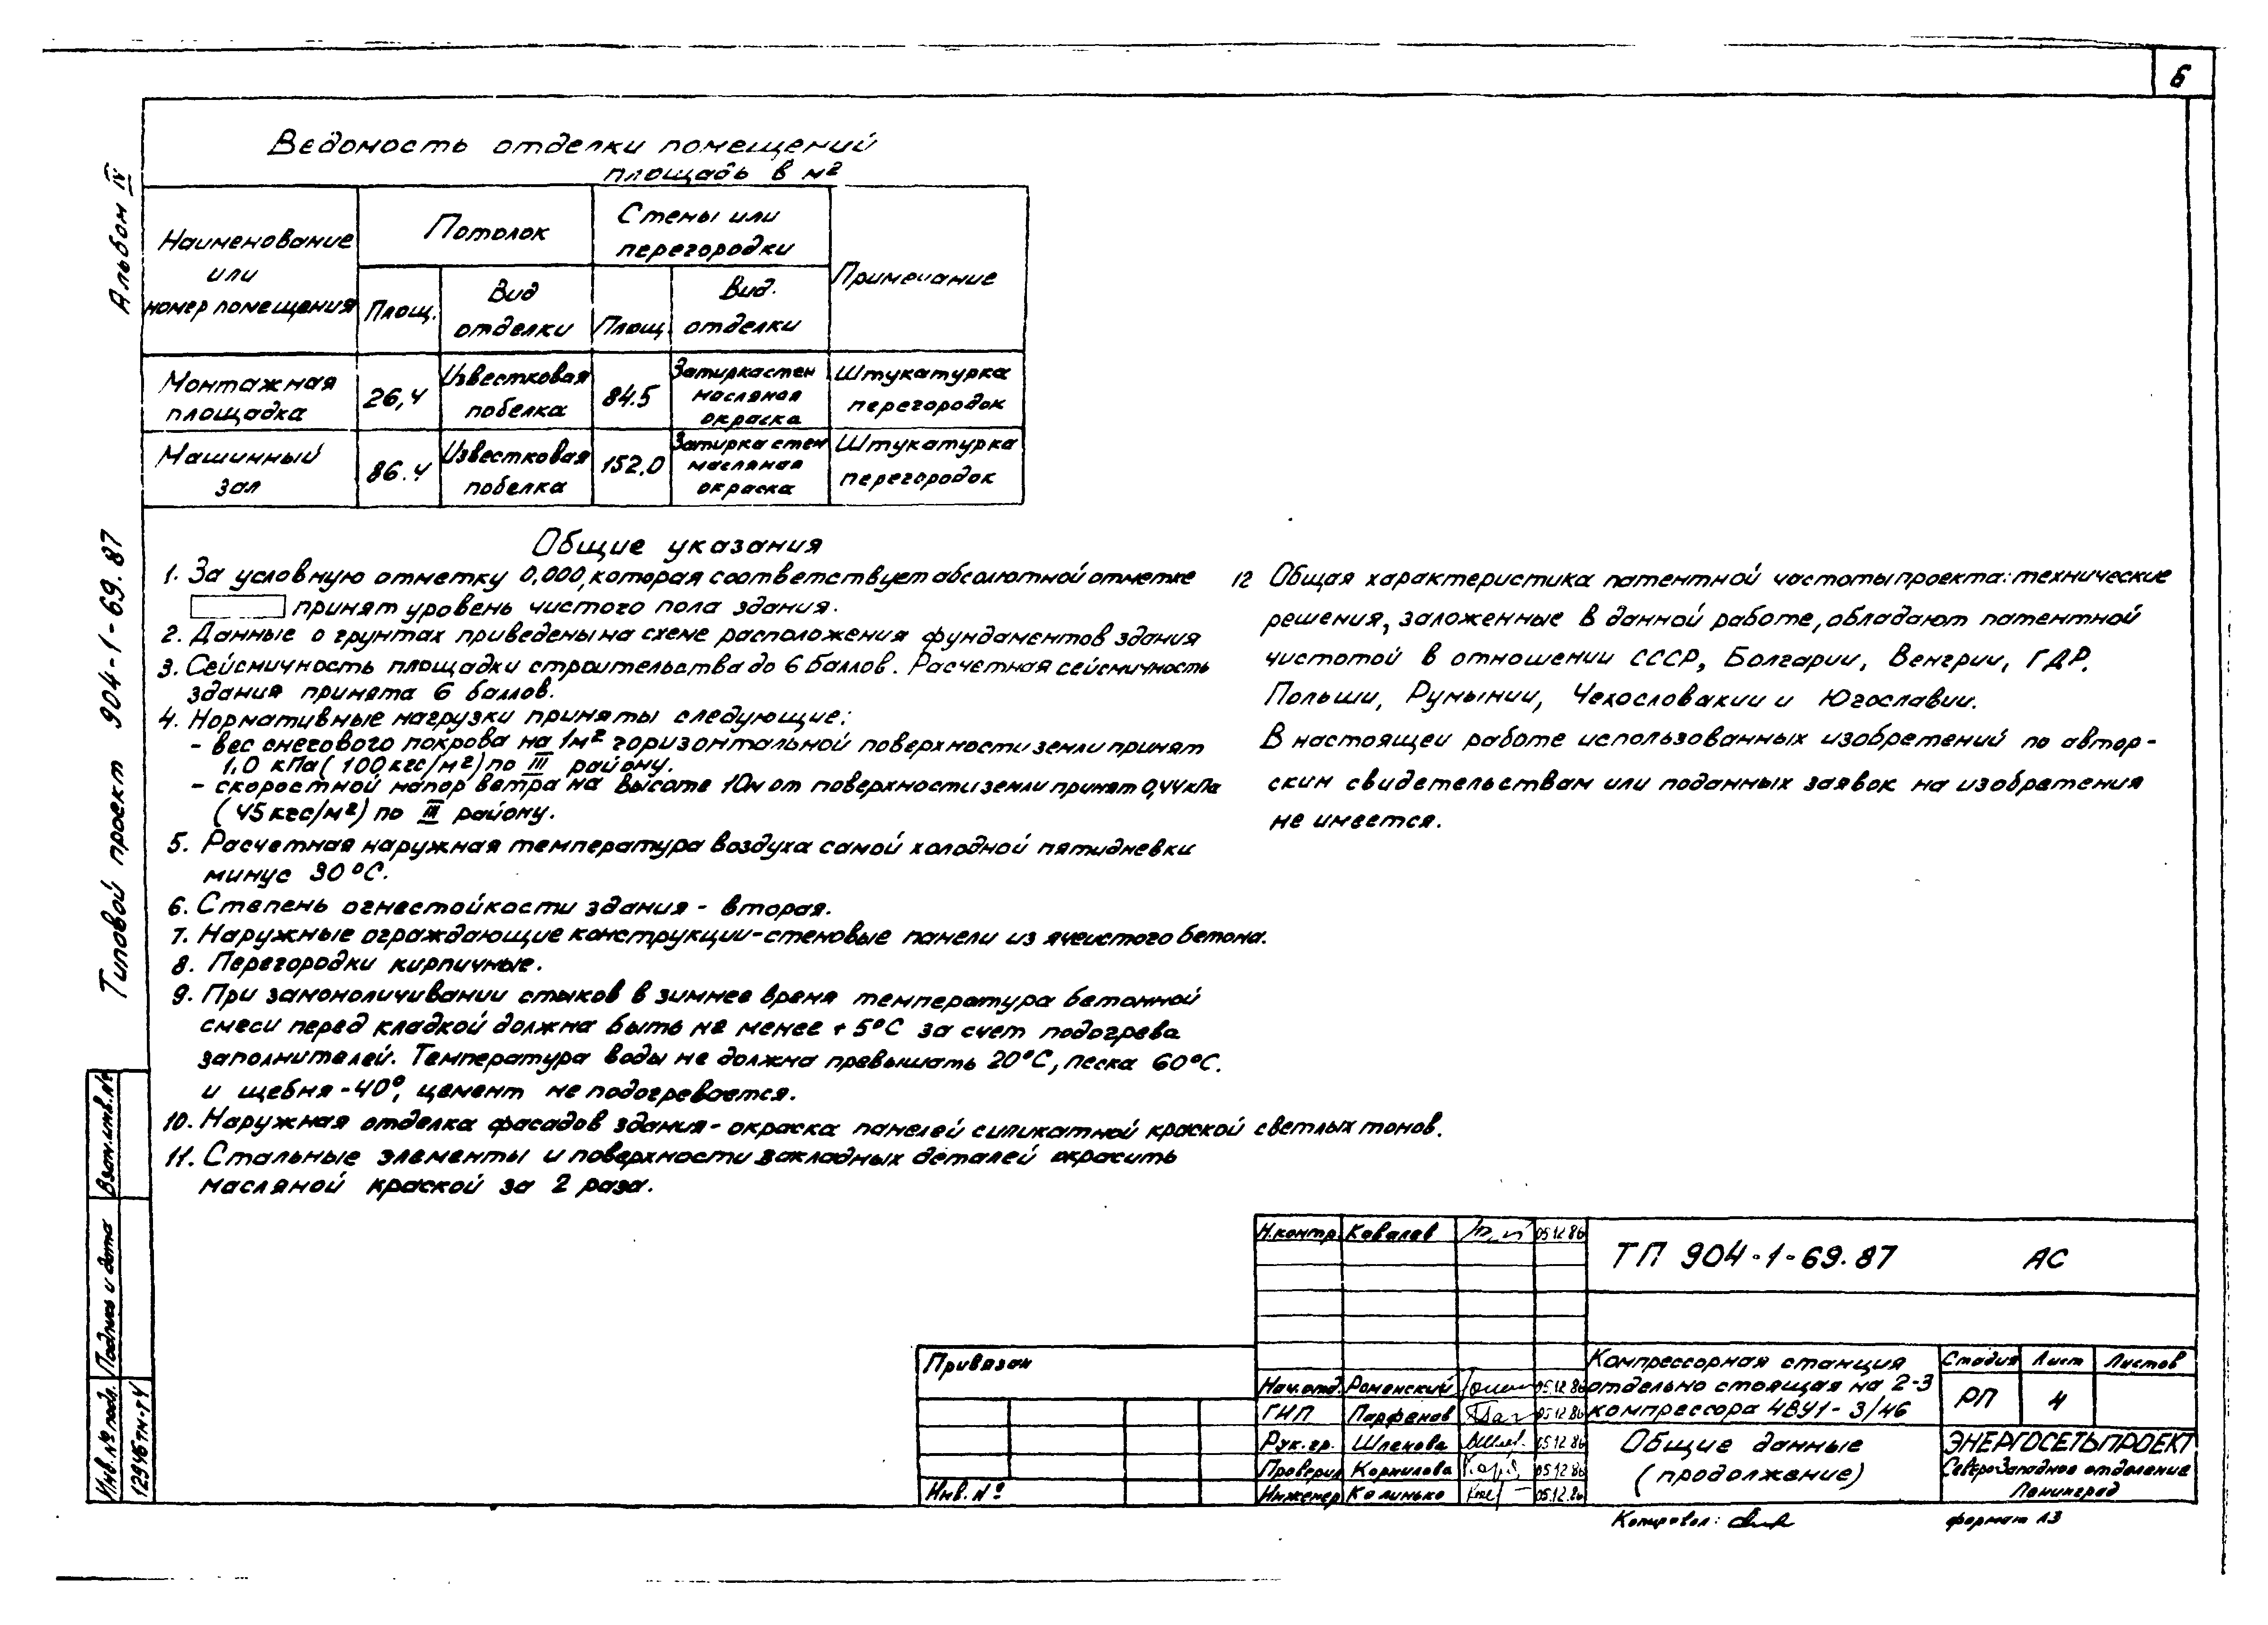 6
Альбом IV
Типовой проект 904-1-69.87
Ведомость отделки помещений
площадь в м²
Наименование
или
номер помещения
Потолок
Стены или
перегородки
Примечание
Площ.
Вид
отделки
Площ.
Вид.
отделки
Монтажная
площадка
26,4
Известковая
побелка
84.5
Затирка стен
масляная
окраска
Штукатурка
перегородок
Машинный
зал
86.4
Известковая
побелка
152.0
Затирка стен
масляная
окраска
Штукатурка
перегородок
Общие указания
1. За условную отметку 0,000, которая соответствует абсолютной отметке
принят уровень чистого пола здания.
2. Данные о грунтах приведены на схеме расположения фундаментов здания
3. Сейсмичность площадки строительства до 6 баллов. Расчетная сейсмичность
здания принята 6 баллов.
4. Нормативные нагрузки приняты следующие:
- вес снегового покрова на 1м² горизонтальной поверхности земли принят
1,0 кПа (100 кгс/м²) по III району.
- скоростной напор ветра на высоте 10м от поверхности земли принят 0,44 кПа
(45 кгс/м²) по III району.
5. Расчетная наружная температура воздуха самой холодной пятидневки
минус 30°С.
6. Степень огнестойкости здания - вторая.
7. Наружные ограждающие конструкции - стеновые панели из ячеистого бетона.
8. Перегородки кирпичные.
9. При замоноличивании стыков в зимнее время температура бетонной
смеси перед кладкой должна быть не менее +5°С за счет подогрева
заполнителей. Температура воды не должна превышать 20°С, песка 60°С.
и щебня -40°, цемент не подогревается.
10. Наружная отделка фасадов здания - окраска панелей силикатной краской светлых тонов.
11. Стальные элементы и поверхности закладных деталей окрасить
масляной краской за 2 раза.
12 Общая характеристика патентной частоты проекта: технические
решения, заложенные в данной работе, обладают патентной
чистотой в отношении СССР, Болгарии, Венгрии, ГДР.
Польши, Румынии, Чехословакии и Югославии.
В настоящей работе использованных изобретений по автор-
ским свидетельствам или поданных заявок на изобретения
не имеется.
Взам.инв.№
Подпись и дата
Инв.№ подл.
12946тм-т4
Привязан
Инв. №
Н.контр. Ковалев 05.12.86
Нач.отд. Роменский 05.12.86
ГИП Парфенов 05.12.86
Рук.гр. Шлекова 05.12.86
Проверил Корнилова 05.12.86
Инженер Калинько 05.12.86
ТП 904-1-69.87 АС
Компрессорная станция
отдельно стоящая на 2-3
компрессора 4ВУ1-3/46
Стадия Лист Листов
РП 4
Общие данные
(продолжение)
ЭНЕРГОСЕТЬПРОЕКТ
Северо-Западное отделение
Ленинград
Копировал:
формат А3